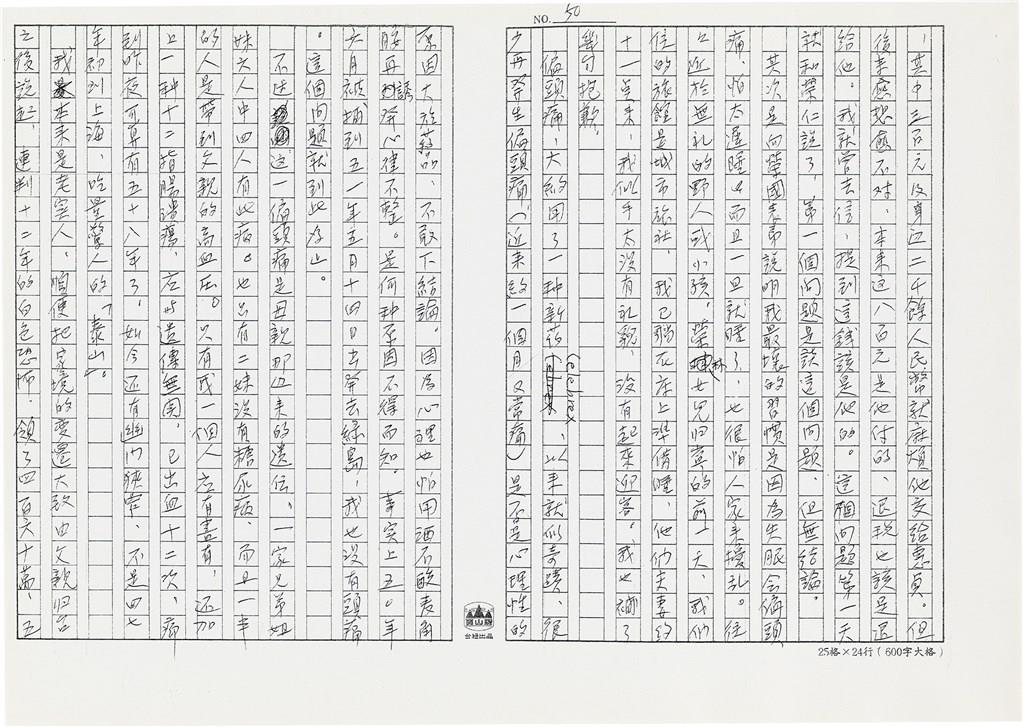 NO. 50
,其中三百元及身边二千餘人民幣就麻煩他交給惠貞。但
後来愈想愈不对,本来这八百元是他付的,退我也該是退
給他。我就曾去信,提到這錢該是他的。這個问題第一天
就和榮仁説了,第一個问題是談這個问題,但無結論。
其次是向榮國表弟説明我最壞的習慣是因為失眠会偏頭
痛,怕太遲睡也而且一旦就睡了,也很怕人家来擾乱。往
々近於無礼的野人或小孩。榮林女兒归寧的前一天,我们
住的旅館是城市旅社,我已躺在床上準備睡,他们夫妻約
十一点来,我似乎太没有礼貌,没有起来迎客。我也補了
幾句抱歉。
偏頭痛,大約用了一种新药(celebrex),以来就似奇蹟,很
少再発生偏頭痛(近来約一個月又常痛)是不是心理性的
原因大於葯品,不敢下結論。因為心理也怕用酒石酸麦角
胺再誘発心律不整。是何种原因不得而知。事实上五〇年
六月被捕到五一年五月十四日出発去緑島,我也没有頭痛
。這個问題就到此為止。
不过這一偏頭痛是母親那边来的遺伝。一家兄弟姐
妹六人中四人有此病。也出有二妹没有糖尿病。而且一半
的人是帯到父親的高血圧。只有我一個人应有盡有,还加
上一种十二指腸潰瘍,应与遺傳無関,已出血十二次,痛
到昨夜可算有五十八年了。如今还有幽门狭窄,不是四七
年初到上海,吃量驚人的「泰山」。
我本来是老实人,順便把家境的变遷大致由父親归台
之後説起,連判十二年的白色恐怖,領了四百六十萬,五
國山牌
台紐出品
25格×24行(600字大格)